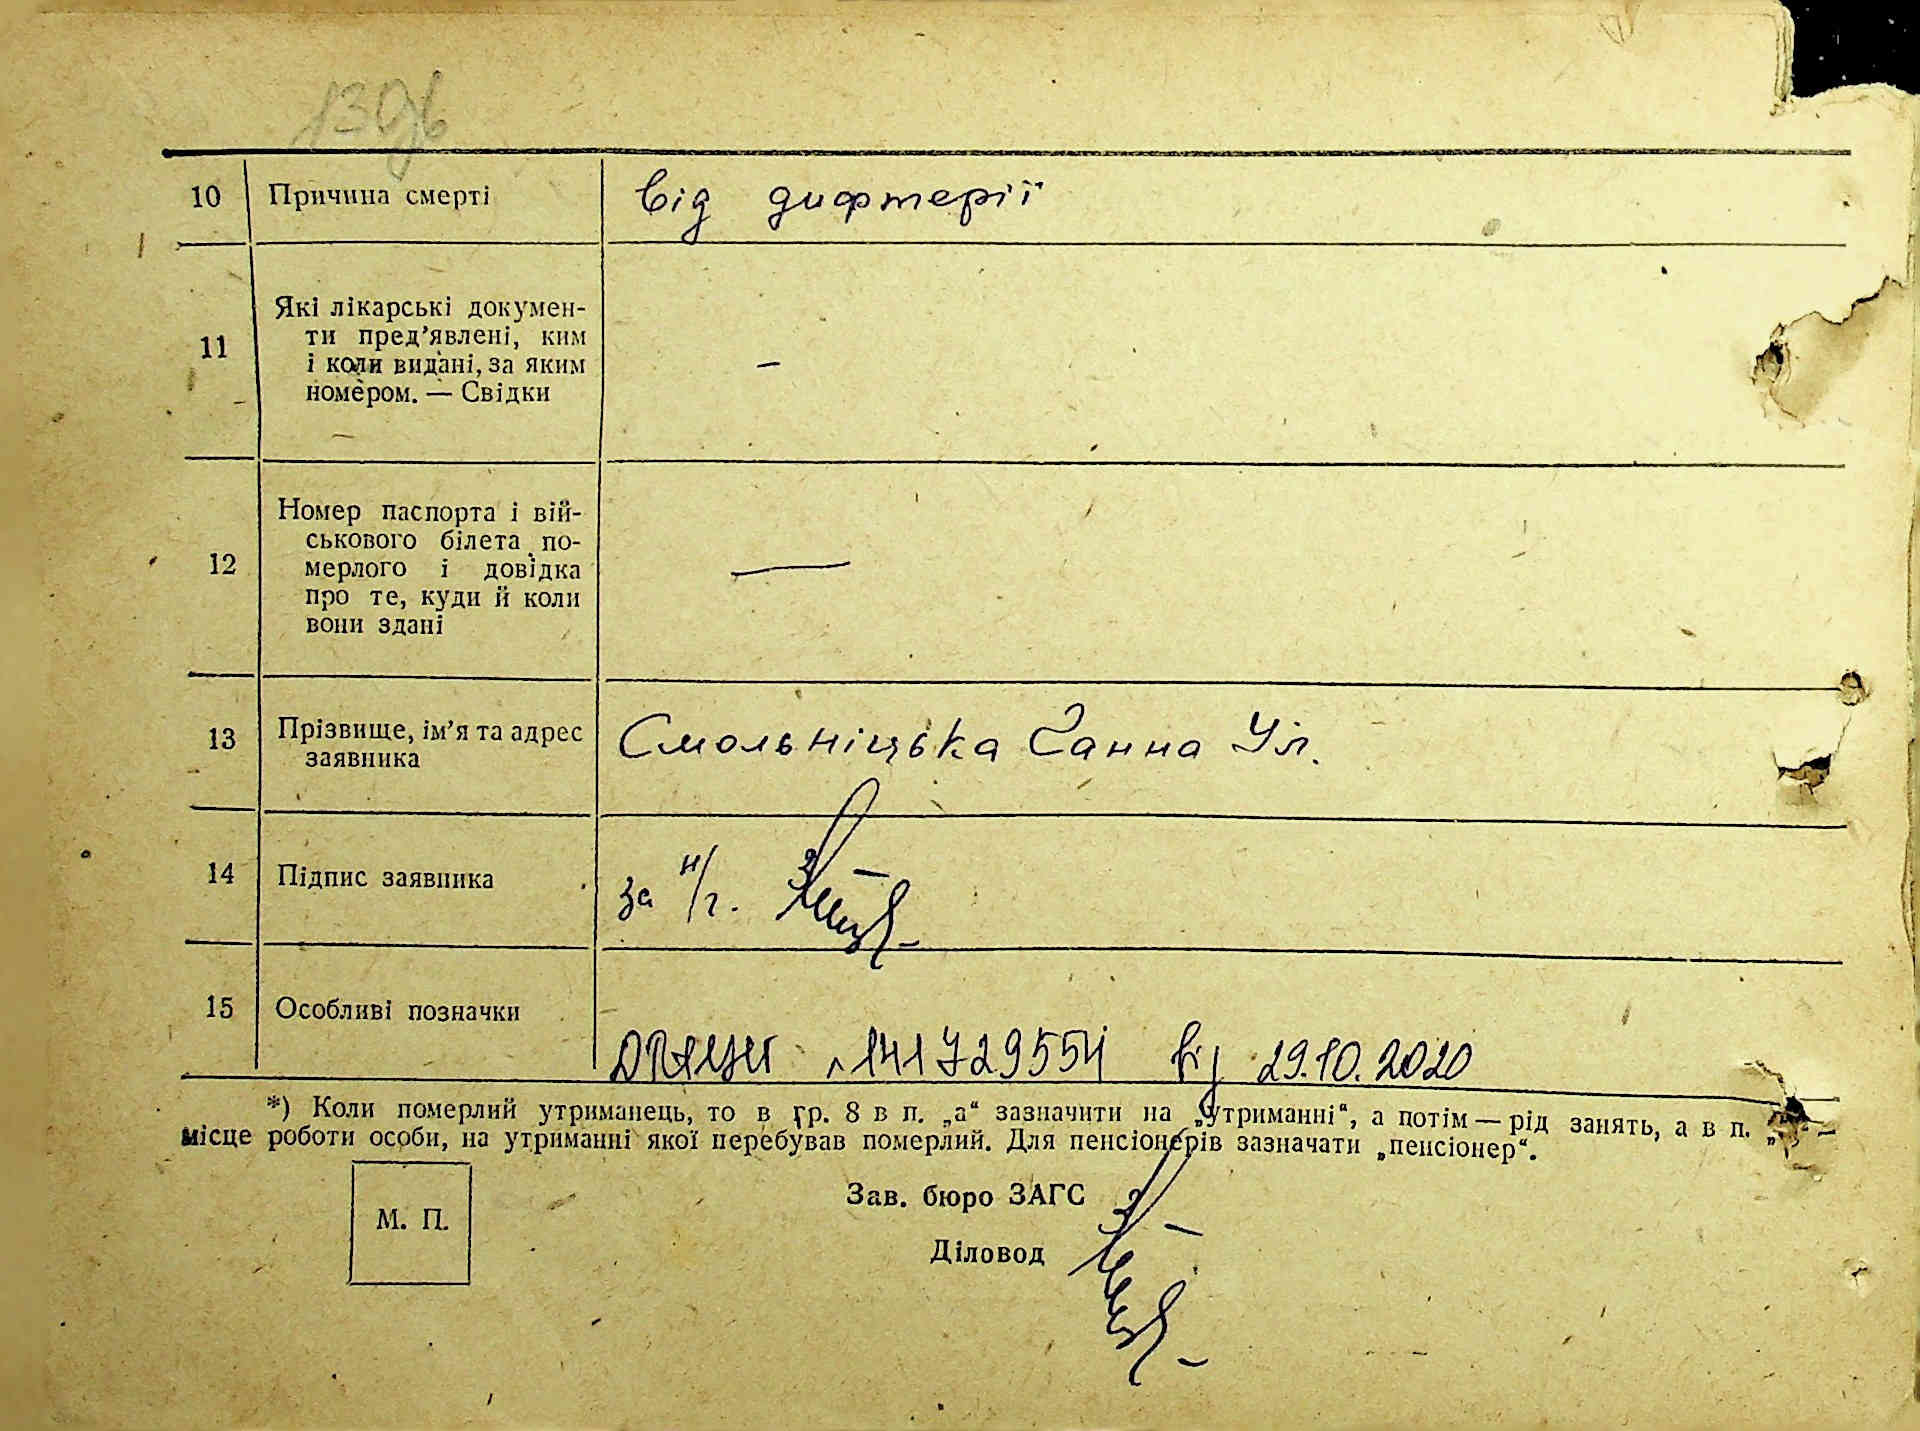 10 Причина смерті від дифтерії
11 Які лікарські докумен-
ти пред’явлені, ким
і коли видані, за яким
номером. — Свідки –
12 Номер паспорта і вій-
ськового білета по-
мерлого і довідка
про те, куди й коли
вони здані —
13 Прізвище, ім’я та адрес
заявника Смольніцька Ганна Ул.
14 Підпис заявника за н/г.
15 Особливі позначки
ДРАЦСГ 141729554 від 29.10.2020
*) Коли померлий утриманець, то в гр. 8 в п. „а“ зазначити на „утриманні“, а потім — рід занять, а в п.
місце роботи особи, на утриманні якої перебував померлий. Для пенсіонерів зазначати „пенсіонер“.
М. П.
Зав. бюро ЗАГС
Діловод